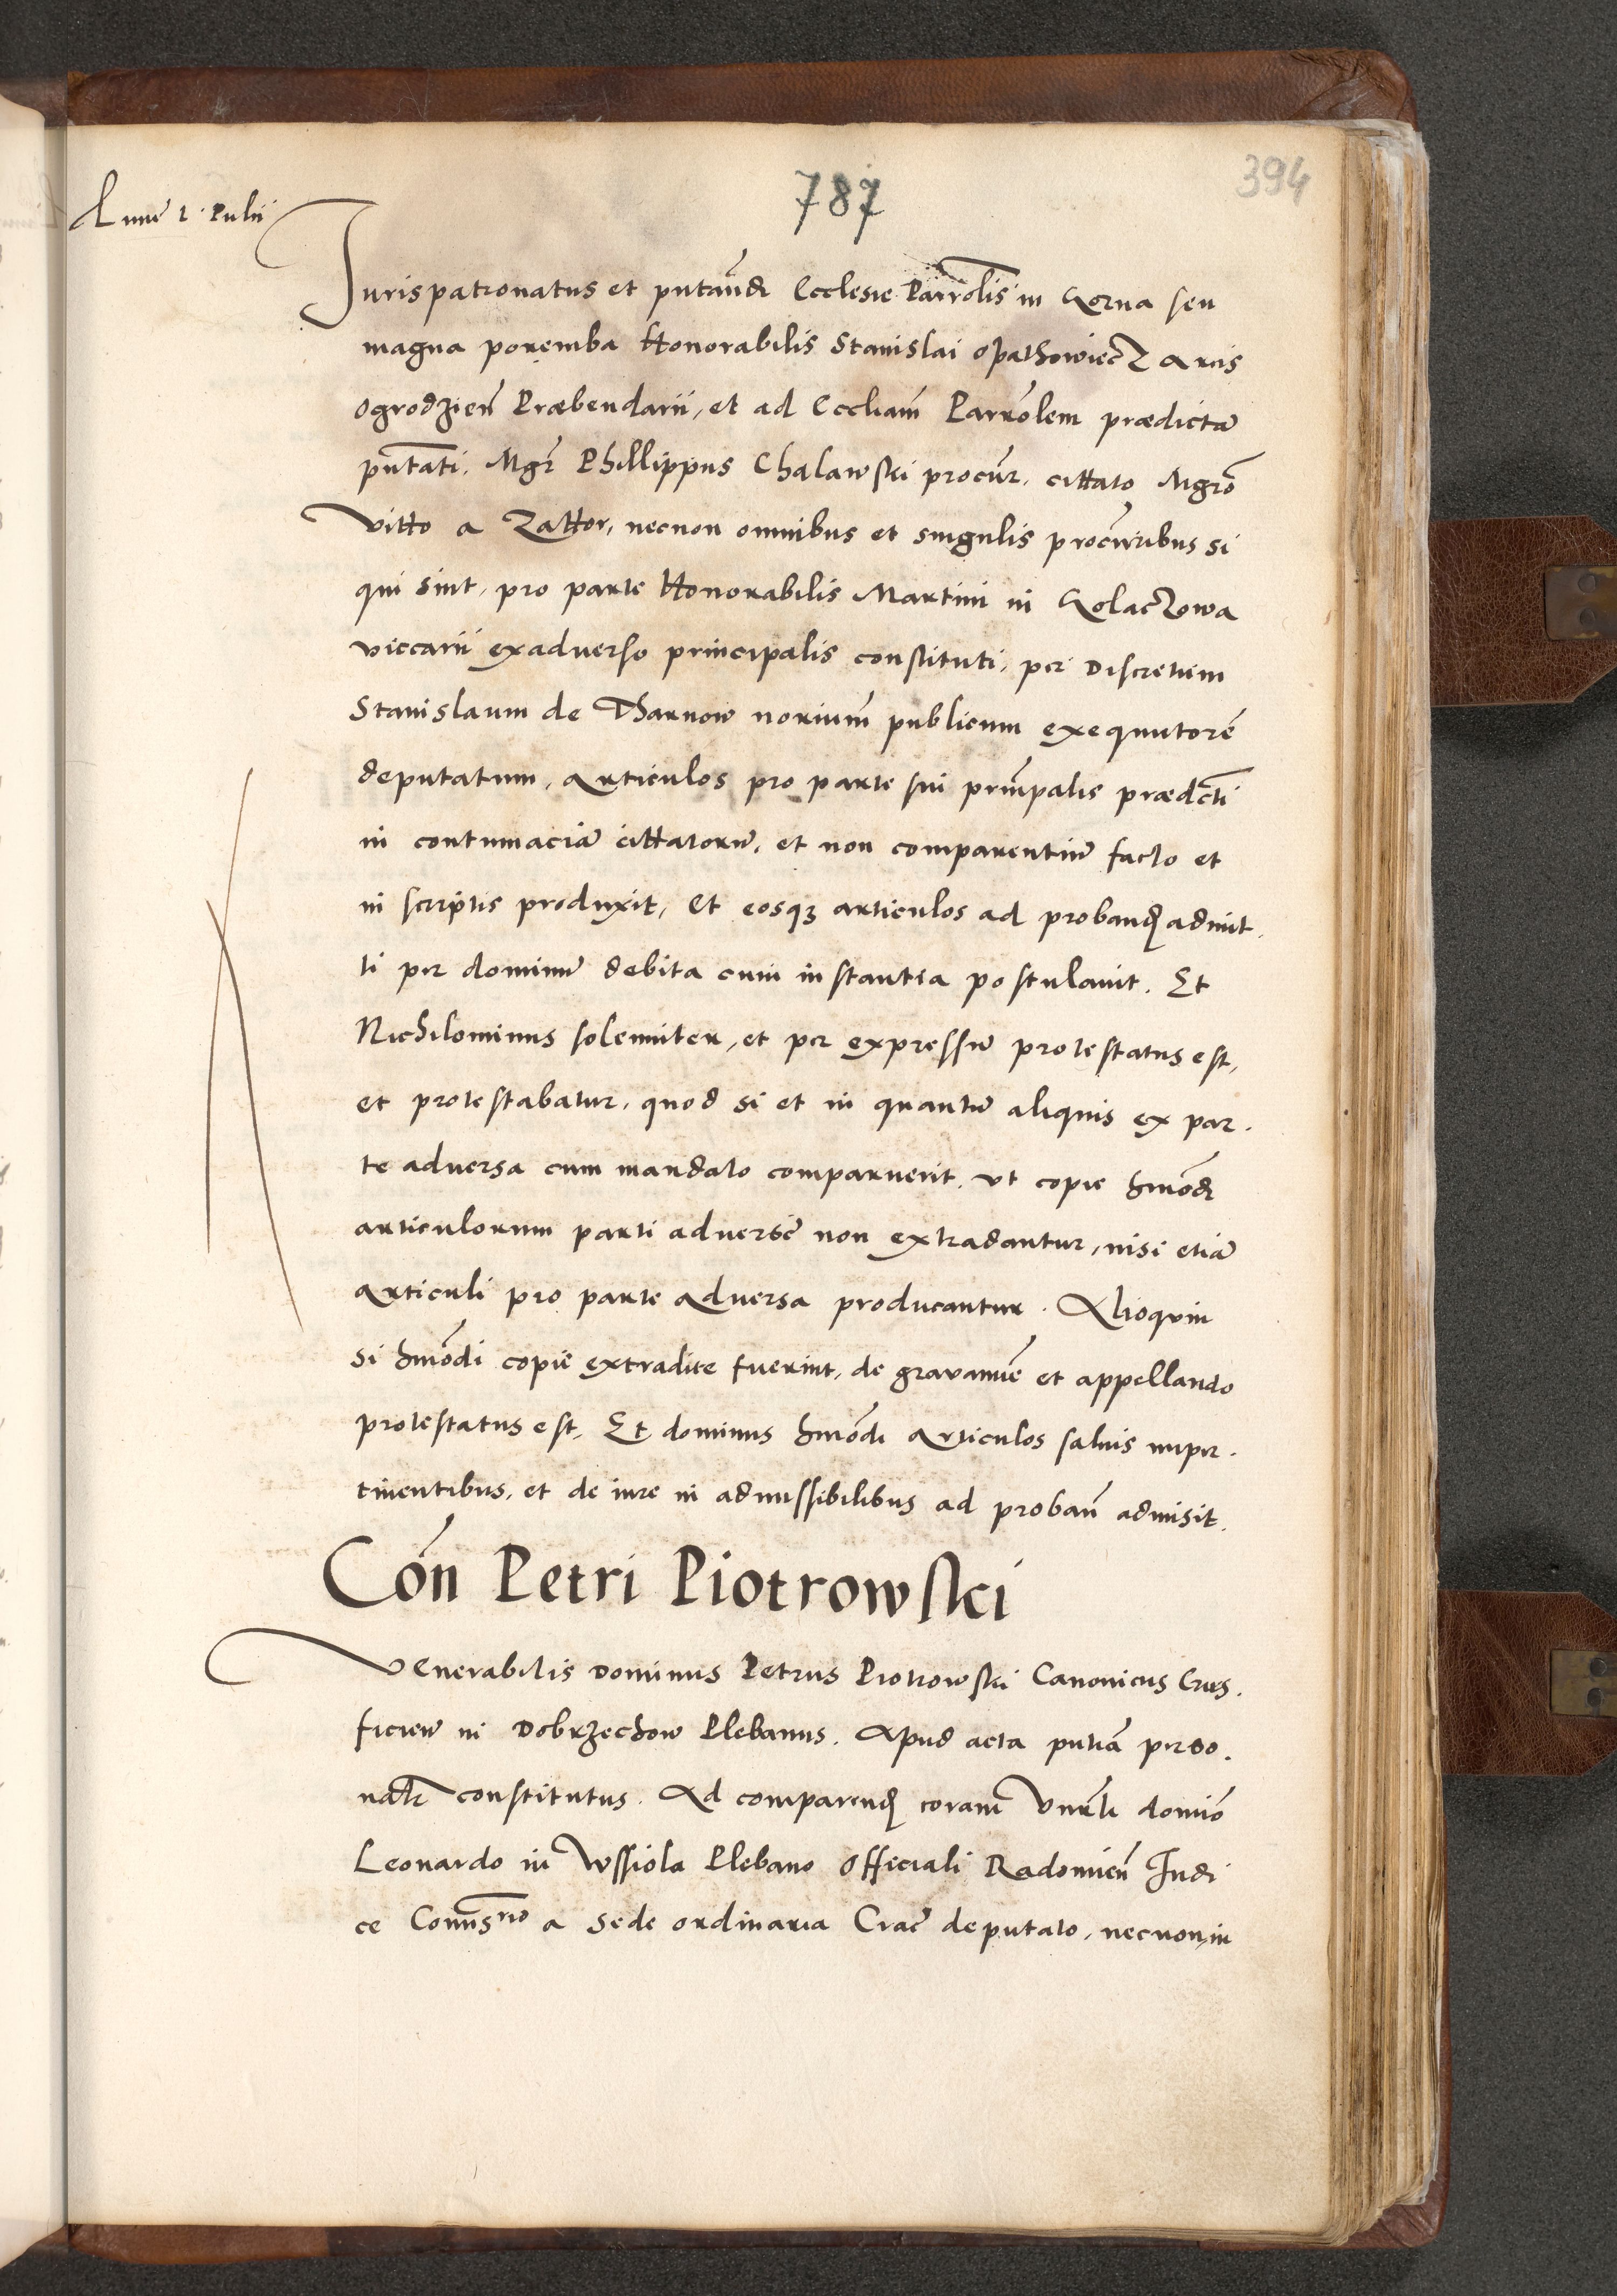 787
394
Lune 2 Julii
Jurispatronatus et pntāndi Ecclesie Parrolis in Korna seu
magna poremba Honorabilis Stanislai Opathowiecz Arcis
Ogrodzien̄ Præbendarii, et ad Eccliam̄ Parrolem prædictā
pntati. Mgr̄ Phillippus Chalawski procur̄. cittato Mgrō
Vitto a Zattor, necnon omnibus et singulis procuribus si
qui sint, pro parte Honorabilis Martini in Kolaczowa
viccarii exadverso principalis constituti, per Discretum
Stanislaum de Tharnow norium̄ publicum exequutorē
deputatum, Articulos pro parte sui prin̄palis prædcti
in contumaciā cittatorū, et non comparentiū facto et
in scriptis produxit, Et eosq₃ articulos ad proband admit.
ti per dominū debita cum instantia postulavit. Et
Nichilominus solemniter, et per expressū protestatus est,
et protestabatur, quod si et in quantū aliquis ex par.
te adversa cum mandato comparuerit, ut copie hmōdi
articulorum parti adverse non extradantur, nisi etiā
articuli pro parte adversa producantur. Alioquin
si hmōdi copie extradite fuerint, de gravamīe et appellando
protestatus est, Et dominus hmōdi Articulos salvis imper.
tinentibus, et de iure in admissibilibus ad proban̄ admisit.
Cōn Petri Piotrowski
Venerabilis Dominus Petrus Piotrowski Canonicus Crus.
ficien̄ in Dobrzechow Plebanus. Apud acta pntia perso.
nalr̄ constitutus. Ad comparend coram Vnrli domīo
Leonardo in Wssiola Plebano Officiali Radomien̄ Judi
ce Comīs^rio a Sede ordinaria Crac̄ deputato, necnon, in